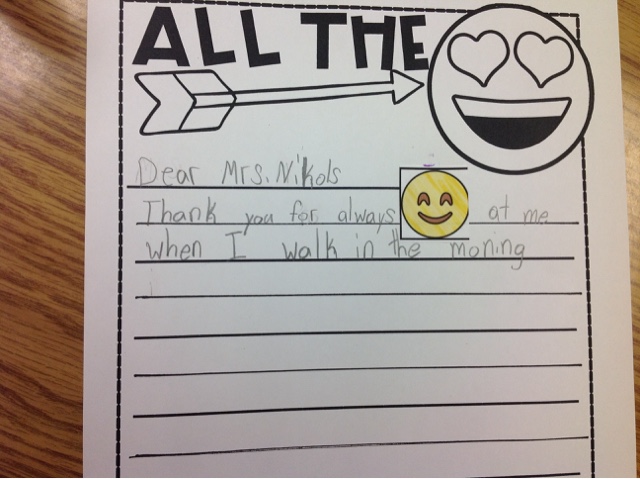 ALL THE
Dear Mrs. Nikols
Thank you for always at me
when I walk in the moning